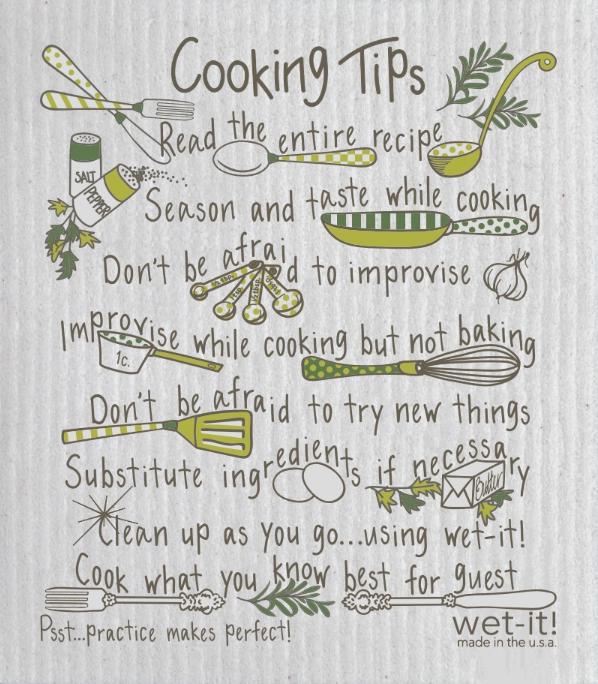 Cooking Tips
Read the entire recipe
SALT
PEPPER
Season and taste while cooking
Don't be afraid to improvise
Improvise while cooking but not baking
1c.
Don't be afraid to try new things
Substitute ingredients if necessary
Butter
Clean up as you go...using wet-it!
Cook what you know best for guest
Psst...practice makes perfect!
wet-it!
made in the u.s.a.